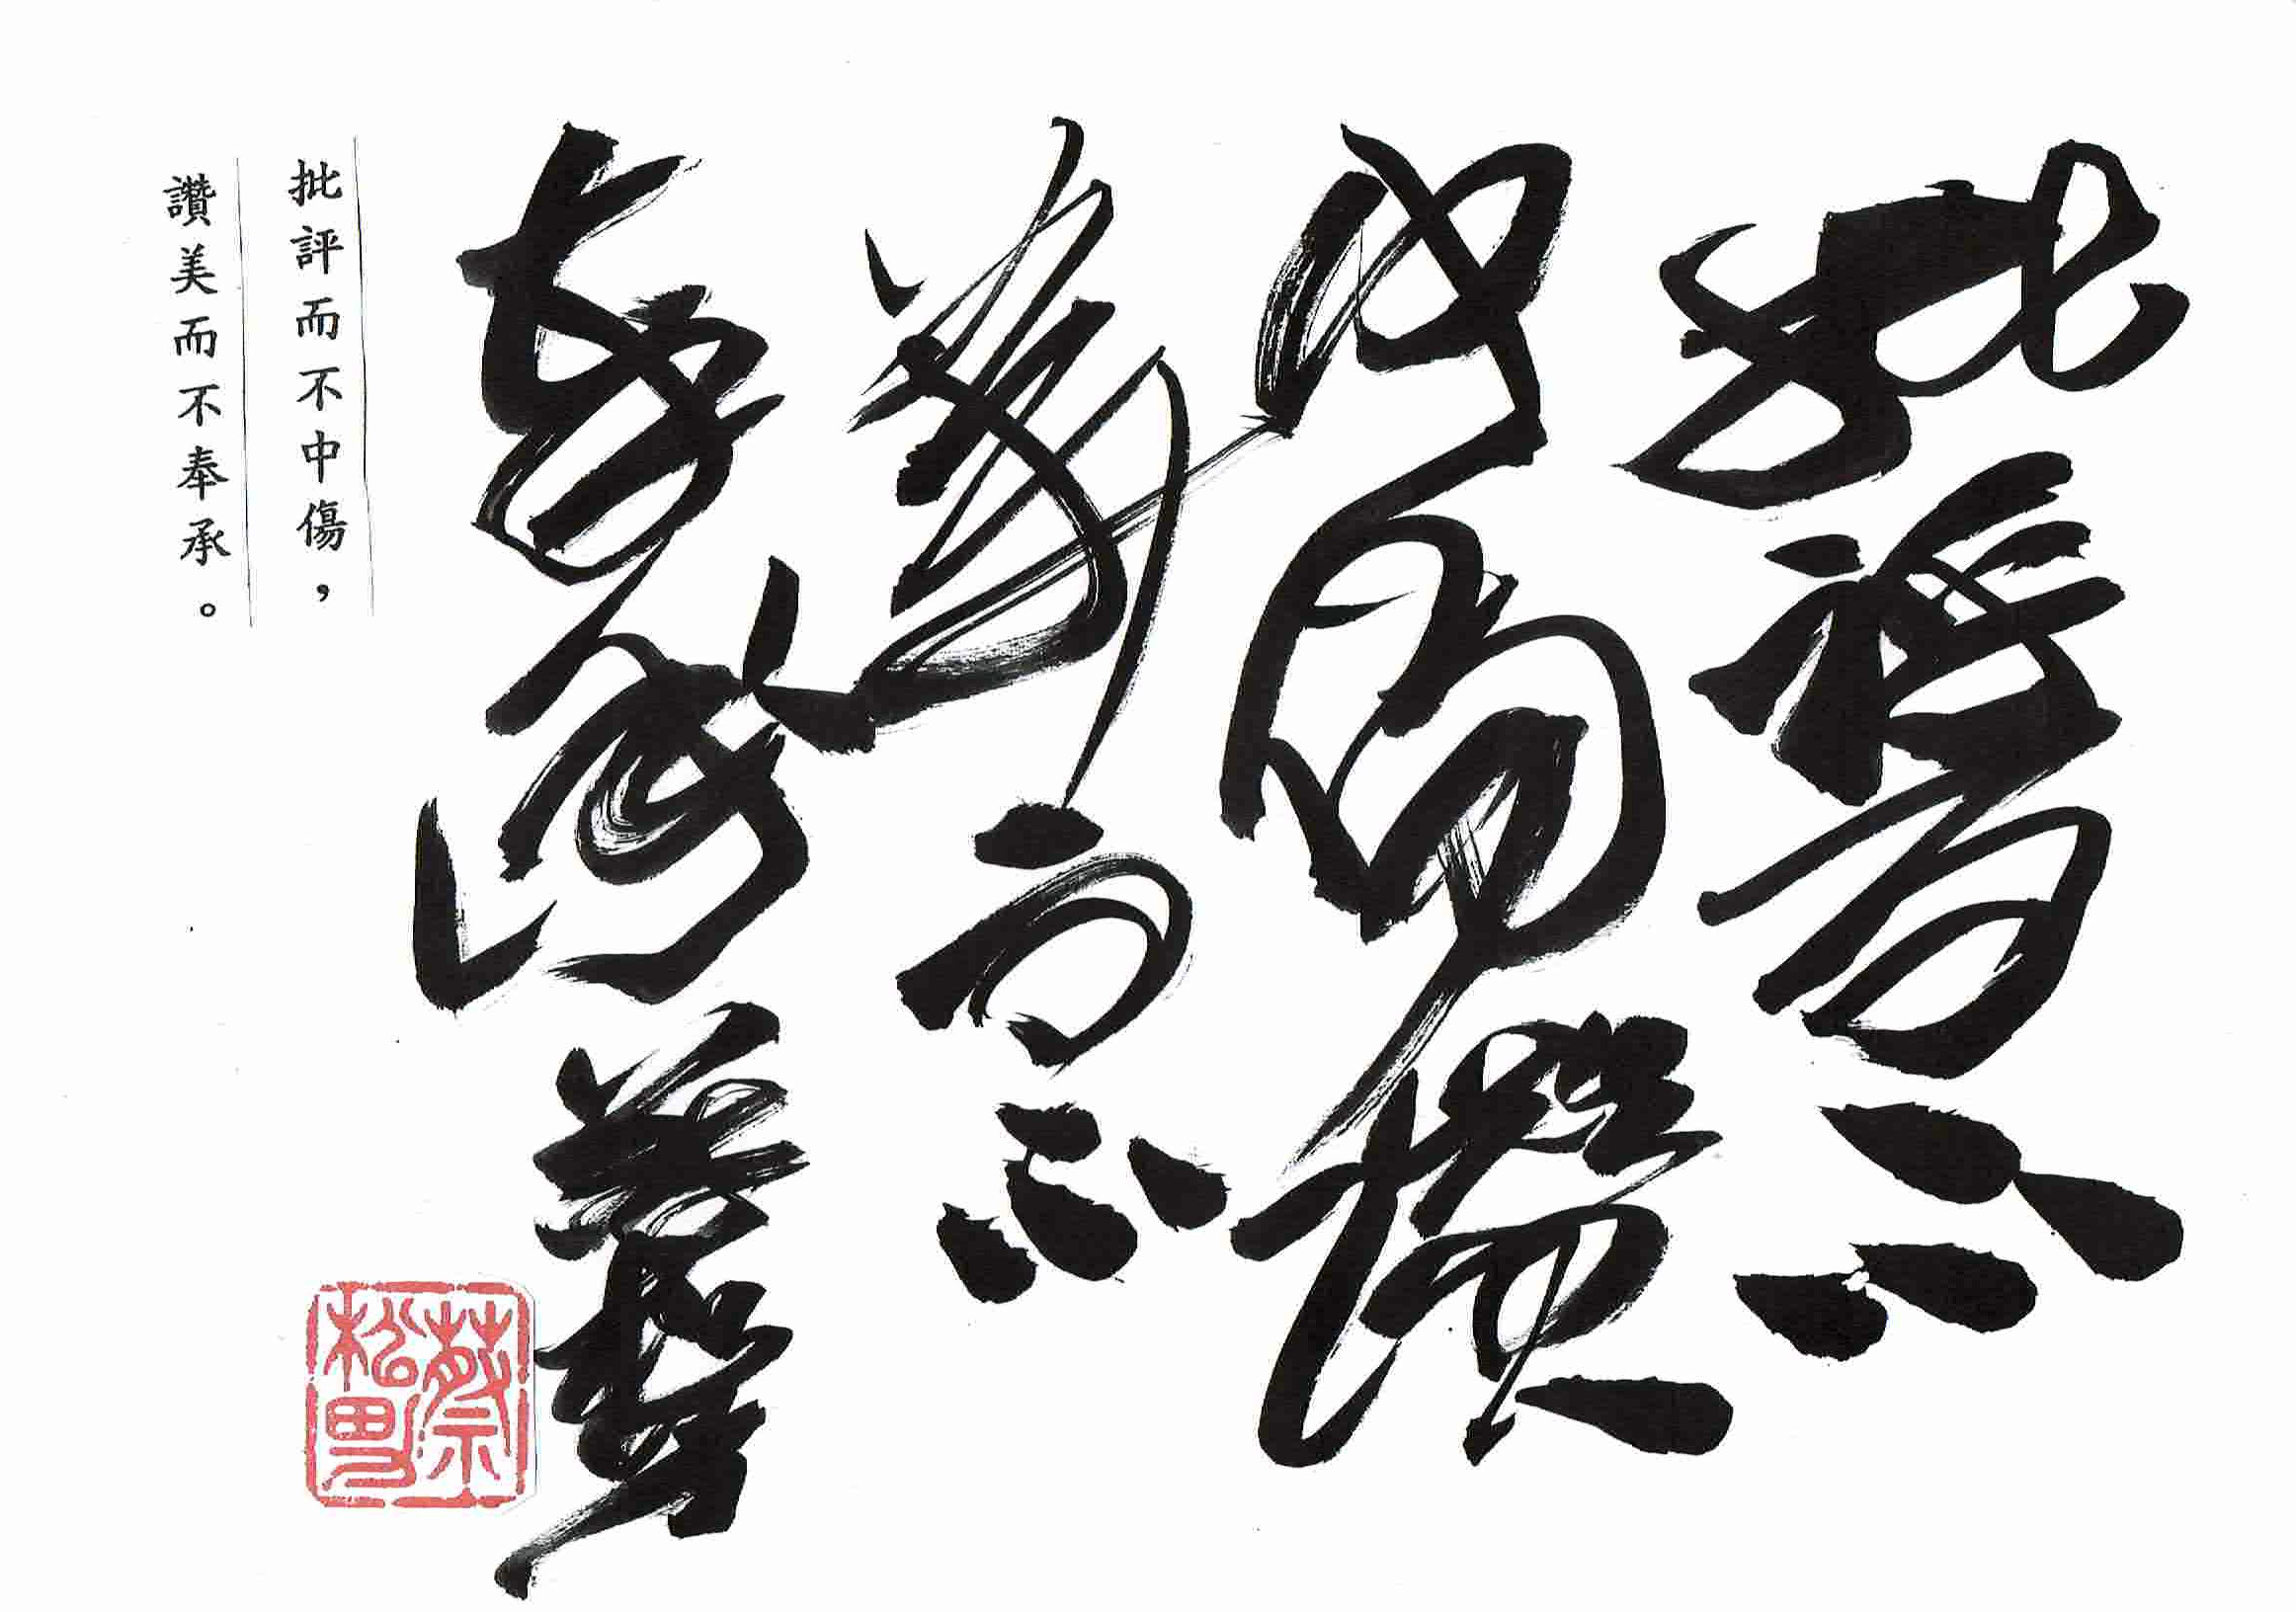 批評而不
中傷讚
美而不
奉承
批評而不中傷，
讚美而不奉承。
蔡松男